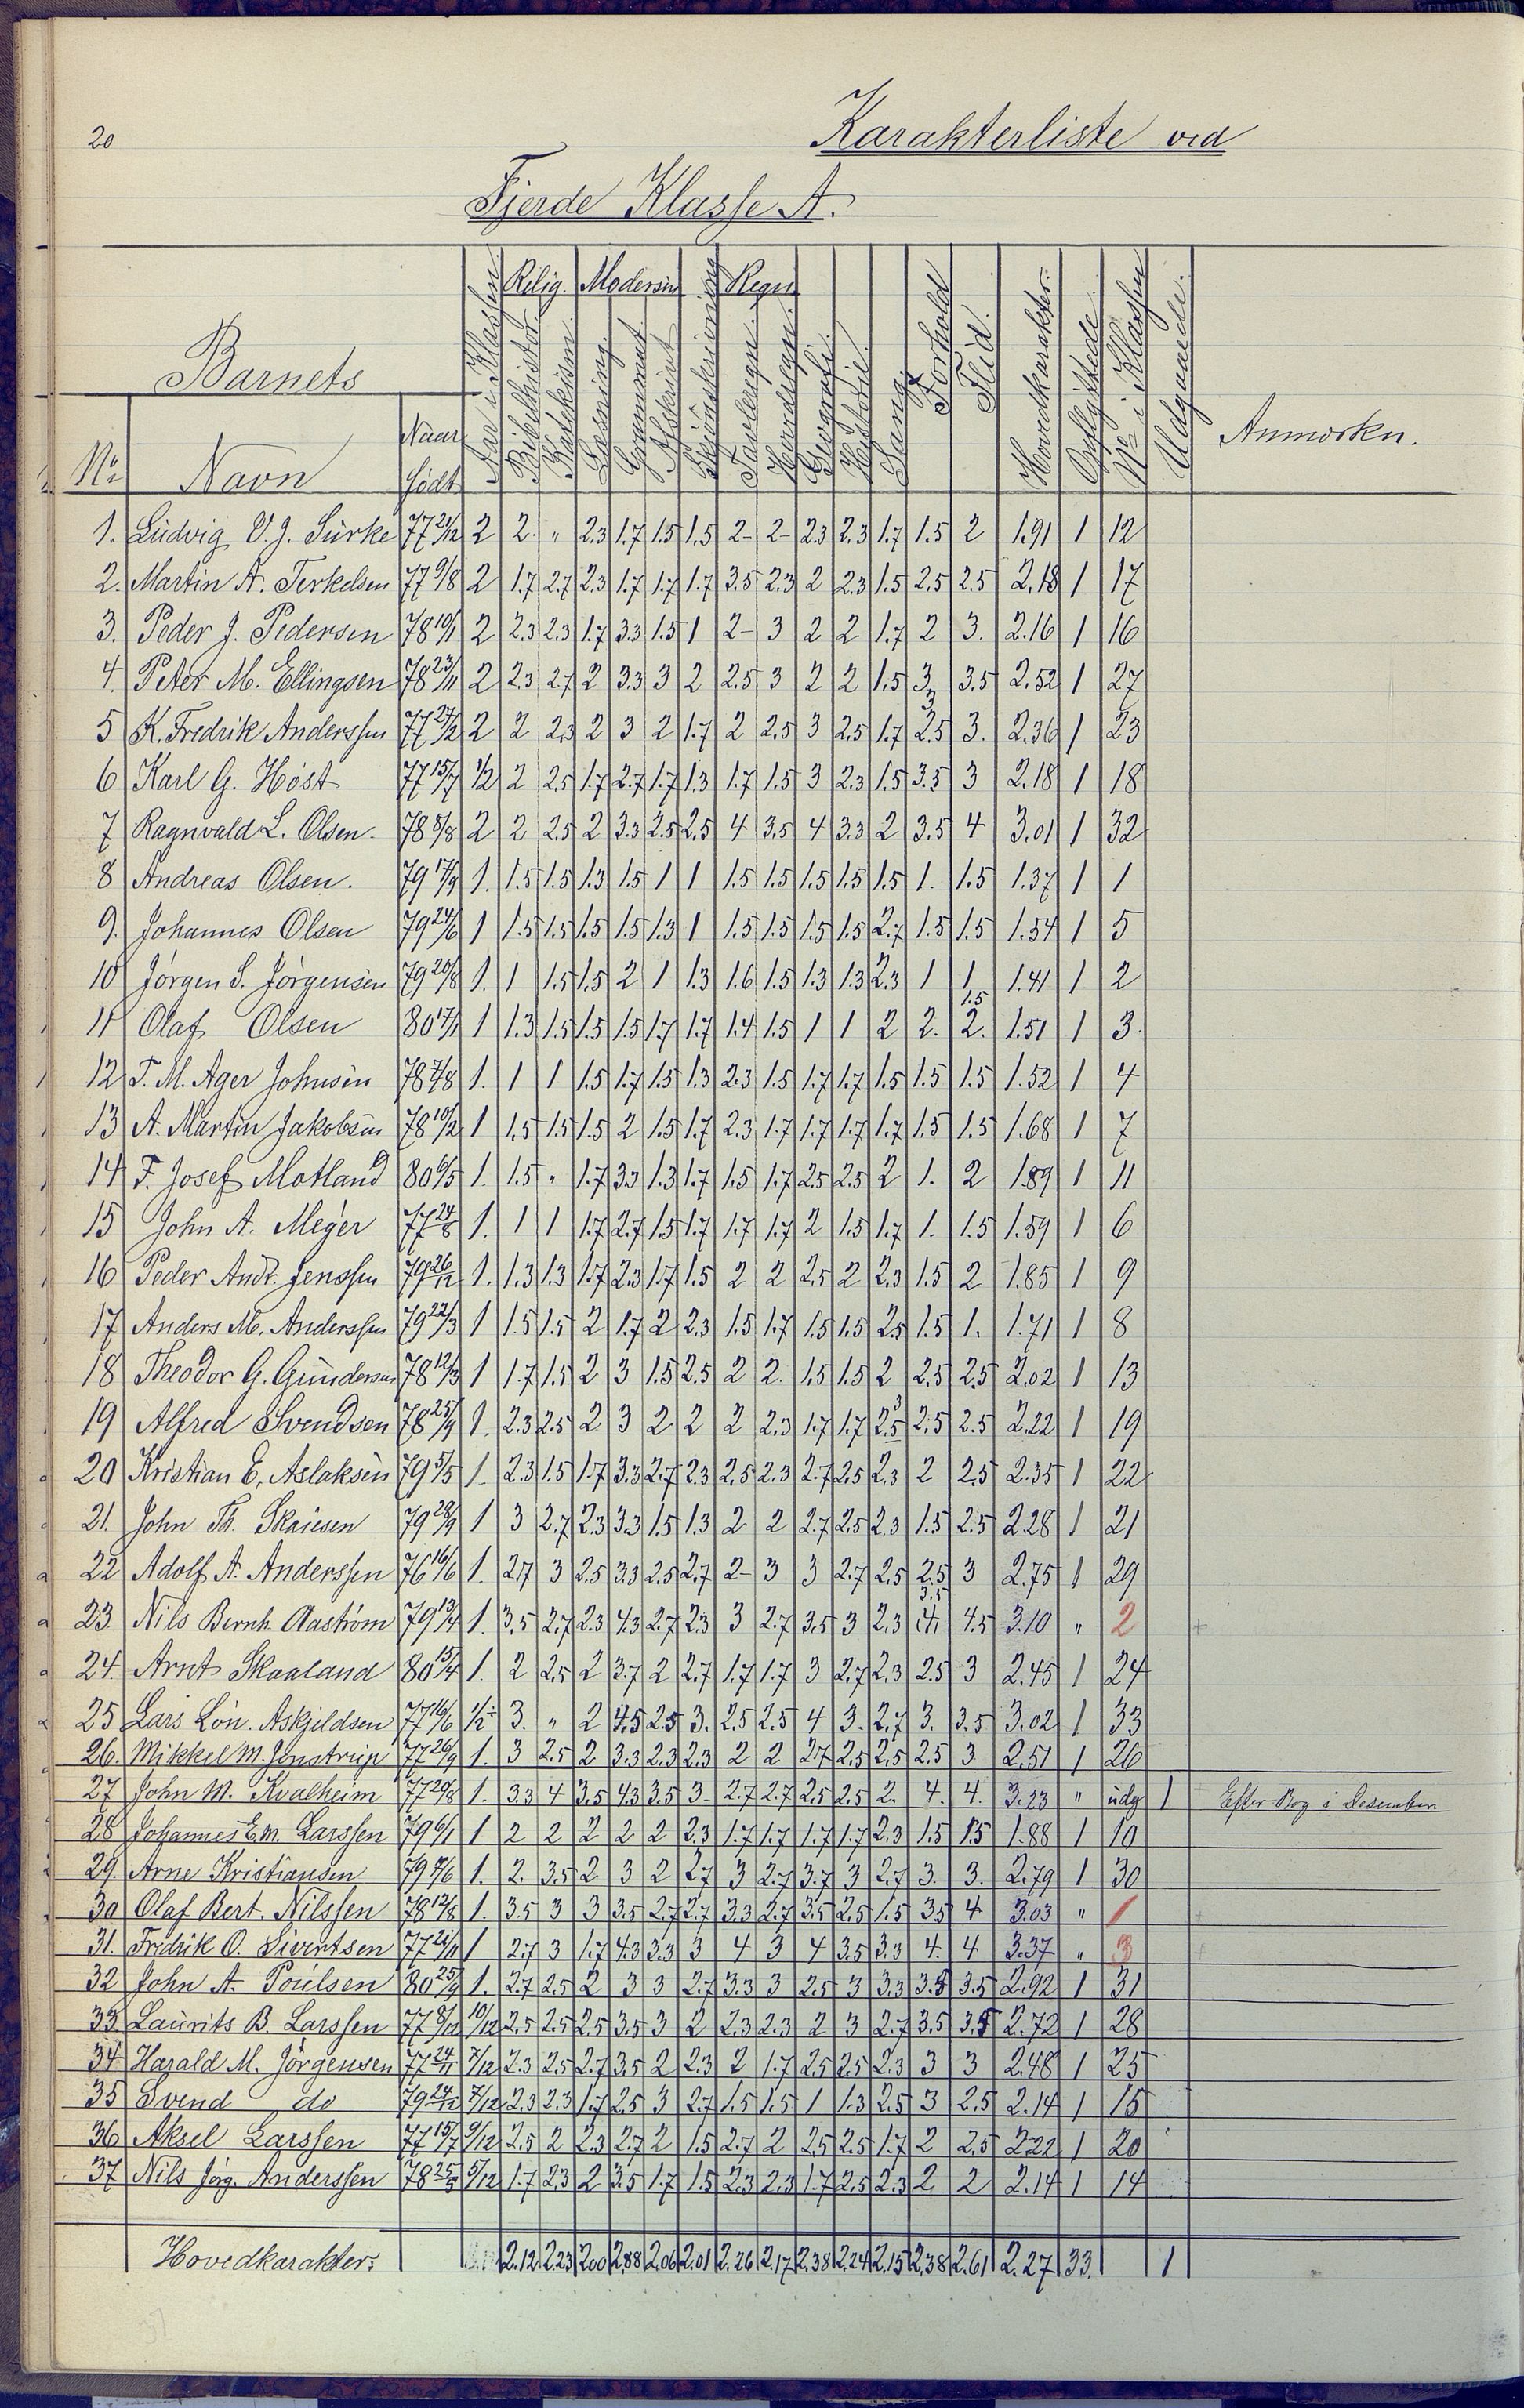 20
Karakterliste ved
Fjerde Klasse A.
Barnets
Relig. Modersm Regn
Aar i Klassen. Bibelhistor. Katekism. Læsning. Grammat. Afskrivn. Skjönskrivning Tavleregn. Hovedregn. Geografi. Historie. Sang. Forhold Flid. Hovedkarakter. Opflyttede No i Klassen Udgaaede. Anmærkn.
No Navn Naar födt
1. Ludvig V. J. Surke 77 21/12 2 2. " 2.3 1.7 1.5 1.5 2- 2- 2.3 2.3 1.7 1.5 2 1.91 1 12
2. Martin A. Terkelsen 77 9/8 2 1.7 2.7 2.3 1.7 1.7 1.7 3.5 2.3 2 2.3 1.5 2.5 2.5 2.18 1 17
3. Peder J. Pedersen 78 19/1 2 2.3 2.3 1.7 3.3 1.5 1 2- 3 2 2 1.7 2 3. 2.16 1 16
4. Peter M. Ellingsen 78 23/11 2 2.3 2.7 2 3.3 3 2 2.5 3 2 2 1.5 3 3.5 2.52 1 27
5 K. Fredrik Anderssen 77 27/12 2 2 2.3 2 3 2 1.7 2 2.5 3 2.5 1.7 2.5 3. 2.36 1 23
6 Karl G. Höst 77 15/7 1/2 2 2.5 1.7 2.7 1.7 1.3 1.7 1.5 3 2.3 1.5 3.5 3 2.18 1 18
7 Ragnvald L. Olsen. 78 8/8 2 2 2.5 2 3.3 2.5 2.5 4 3.5 4 3.3 2 3.5 4 3.01 1 32
8 Andreas Olsen. 79 17/9 1. 1.5 1.5 1.3 1.5 1 1 1.5 1.5 1.5 1.5 1.5 1. 1.5 1.37 1 1
9. Johannes Olsen 79 24/6 1 1.5 1.5 1.5 1.5 1.3 1 1.5 1.5 1.5 1.5 2.7 1.5 1.5 1.54 1 5
10 Jörgen S. Jörgensen 79 20/8 1. 1 1.5 1.5 2 1 1.3 1.6 1.5 1.3 1.3 2.3 1 1 1.41 1 2
11 Olaf Olsen 80 17/1 1 1.3 1.5 1.5 1.5 1.7 1.7 1.4 1.5 1 1 2 2. 1.5 2. 1.51 1 3.
12 T. M. Ager Johnsen 78 7/8 1. 1 1 1.5 1.7 1.5 1.3 2.3 1.5 1.7 1.7 1.5 1.5 1.5 1.52 1 4
13 A. Martin Jakobsen 78 10/2 1 1.5 1.5 1.5 2 1.5 1.7 2.3 1.7 1.7 1.7 1.7 1.5 1.5 1.68 1 7
14 F. Josef Motland 80 6/5 1. 1.5 " 1.7 3.3 1.3 1.7 1.5 1.7 2.5 2.5 2 1. 2 1.89 1 11
15 John A. Meÿer 77 24/8 1. 1 1 1.7 2.7 1.5 1.7 1.7 1.7 2 1.5 1.7 1. 1.5 1.59 1 6
16 Peder Andr. Jenssen 79 26/12 1. 1.3 1.3 1.7 2.3 1.7 1.5 2 2 2.5 2 2.3 1.5 2 1.85 1 9
17 Anders M. Anderssen 79 22/3 1 1.5 1.5 2 1.7 2 2.3 1.5 1.7 1.5 1.5 2.5 1.5 1. 1.71 1 8
18 Theodor G. Gundersen 78 12/3 1 1.7 1.5 2 3 1.5 2.5 2 2. 1.5 1.5 2 2.5 2.5 2.02 1 13
19 Alfred Svendsen 78 25/9 1. 2.3 2.5 2 3 2 2 2 2.3 1.7 1.7 2.5 2.5 2.5 2.22 1 19
20 Kristian E. Aslaksen 79 5/5 1. 2.3 1.5 1.7 3.3 2.7 2.3 2.5 2.3 2.7 2.5 2.3 2 2.5 2.35 1 22
21. John Th. Skaiesen 79 28/9 1 3 2.7 2.3 3.3 1.5 1.3 2 2 2.7 2.5 2.3 1.5 2.5 2.28 1 21
22 Adolf A. Anderssen 76 16/6 1. 2.7 3 2.5 3.3 2.5 2.7 2- 3 3 2.7 2.5 2.5 3 2.75 1 29
23. Nils Bernh. Aaström 79 13/4 1. 3.5 2.7 2.3 4.3 2.7 2.3 3 2.7 3.5 3 2.3 3.5 4 4.5 3.10 " 2 +
24. Arnt Skaaland 80 15/4 1. 2 2.5 2 3.7 2 2.7 1.7 1.7 3 2.7 2.3 2.5 3 2.45 1 24
25 Lars Lön. Askjeldsen 77 16/6 1/2 3. " 2 4.5 2.5 3. 2.5 2.5 4 3. 2.7 3. 3.5 3.02 1 33
26. Mikkel M. Jenstrup 77 26/9 1. 3 2.5 2 3.3 2.3 2.3 2 2 2.7 2.5 2.5 2.5 3 2.51 1 26
27 John M. Kvalheim 77 20/8 1. 3.3 4 3.5 4.3 3.5 3- 2.7 2.7 2.5 2.5 2. 4. 4. 3.23 " udg 1 Efter Beg i Desember
28 Johannes Em. Larssen 79 6/1 1 2 2 2 2 2 2.3 1.7 1.7 1.7 1.7 2.3 1.5 1.5 1.88 1 10
29. Arne Kristiansen 79 7/6 1. 2. 3.5 2 3 2 2.7 3 2.7 3.7 3 2.7 3. 3. 2.79 1 30
30 Olaf Bert. Nilssen 78 12/8 1. 3.5 3 3 3.5 2.7 2.7 3.3 2.7 3.5 2.5 1.5 3.5 4 3.03 " 1
31. Fredrik O. Sivertsen 77 21/11 1 2.7 3 1.7 4.3 3.3 3 4 3 4 3.5 3.3 4. 4 3.37 " 3
32 John A. Poulsen 80 25/9 1. 2.7 2.5 2 3 3 2.7 3.3 3 2.5 3 3.3 3.5 3.5 2.92 1 31
33. Laurits B. Larssen 77 8/12 10/12 2.5 2.5 2.5 3.5 3 2 2.3 2.3 2 3 2.7 3.5 3.5 2.72 1 28
34 Harald M. Jörgensen 77 24/11 7/12 2.3 2.5 2.7 3.5 2 2.3 2 1.7 2.5 2.5 2.3 3 3 2.48 1 25
35 Svend do 79 24/12 7/12 2.3 2.3 1.7 2.5 3 2.7 1.5 1.5 1 1.3 2.5 3 2.5 2.14 1 15
36 Aksel Larssen 77 15/7 9/12 2.5 2 2.3 2.7 2 1.5 2.7 2 2.5 2.5 1.7 2 2.5 2.22 1 20
37 Nils Jörg. Anderssen 78 25/3 5/12 1.7 2.3 2 3.5 1.7 1.5 2.3 2.3 1.7 2.5 2.3 2 2 2.14 1 14
Hovedkarakter: 2.12 2.23 2.00 2.88 2.06 2.01 2.26 2.17 2.38 2.24 2.15 2.38 2.61 2.27 33. 1